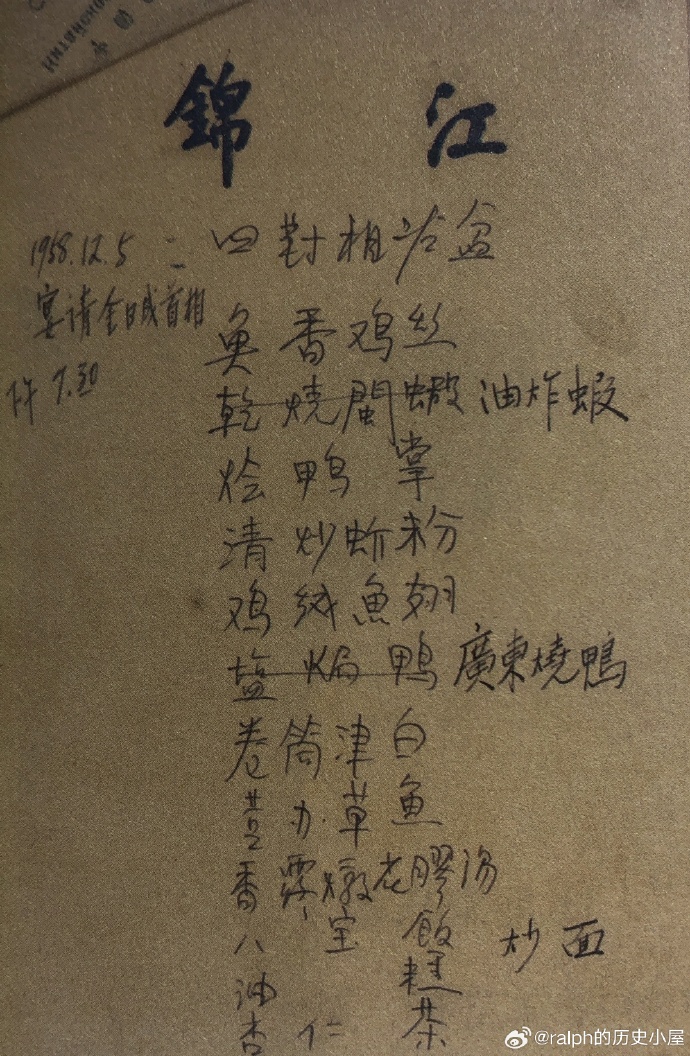 錦 江
1958.12.5
宴请金日成首相
下午 7.30
四對相冷盆
魚香鸡丝
乾燒閩蝦 油炸蝦
烩鴨掌
清炒蚧粉
鸡绒魚翅
塩焗鴨 廣東燒鴨
卷筒津白
草魚
香露燉花膠汤
八宝飯 炒面
油糕
杏仁茶
@ralph的历史小屋